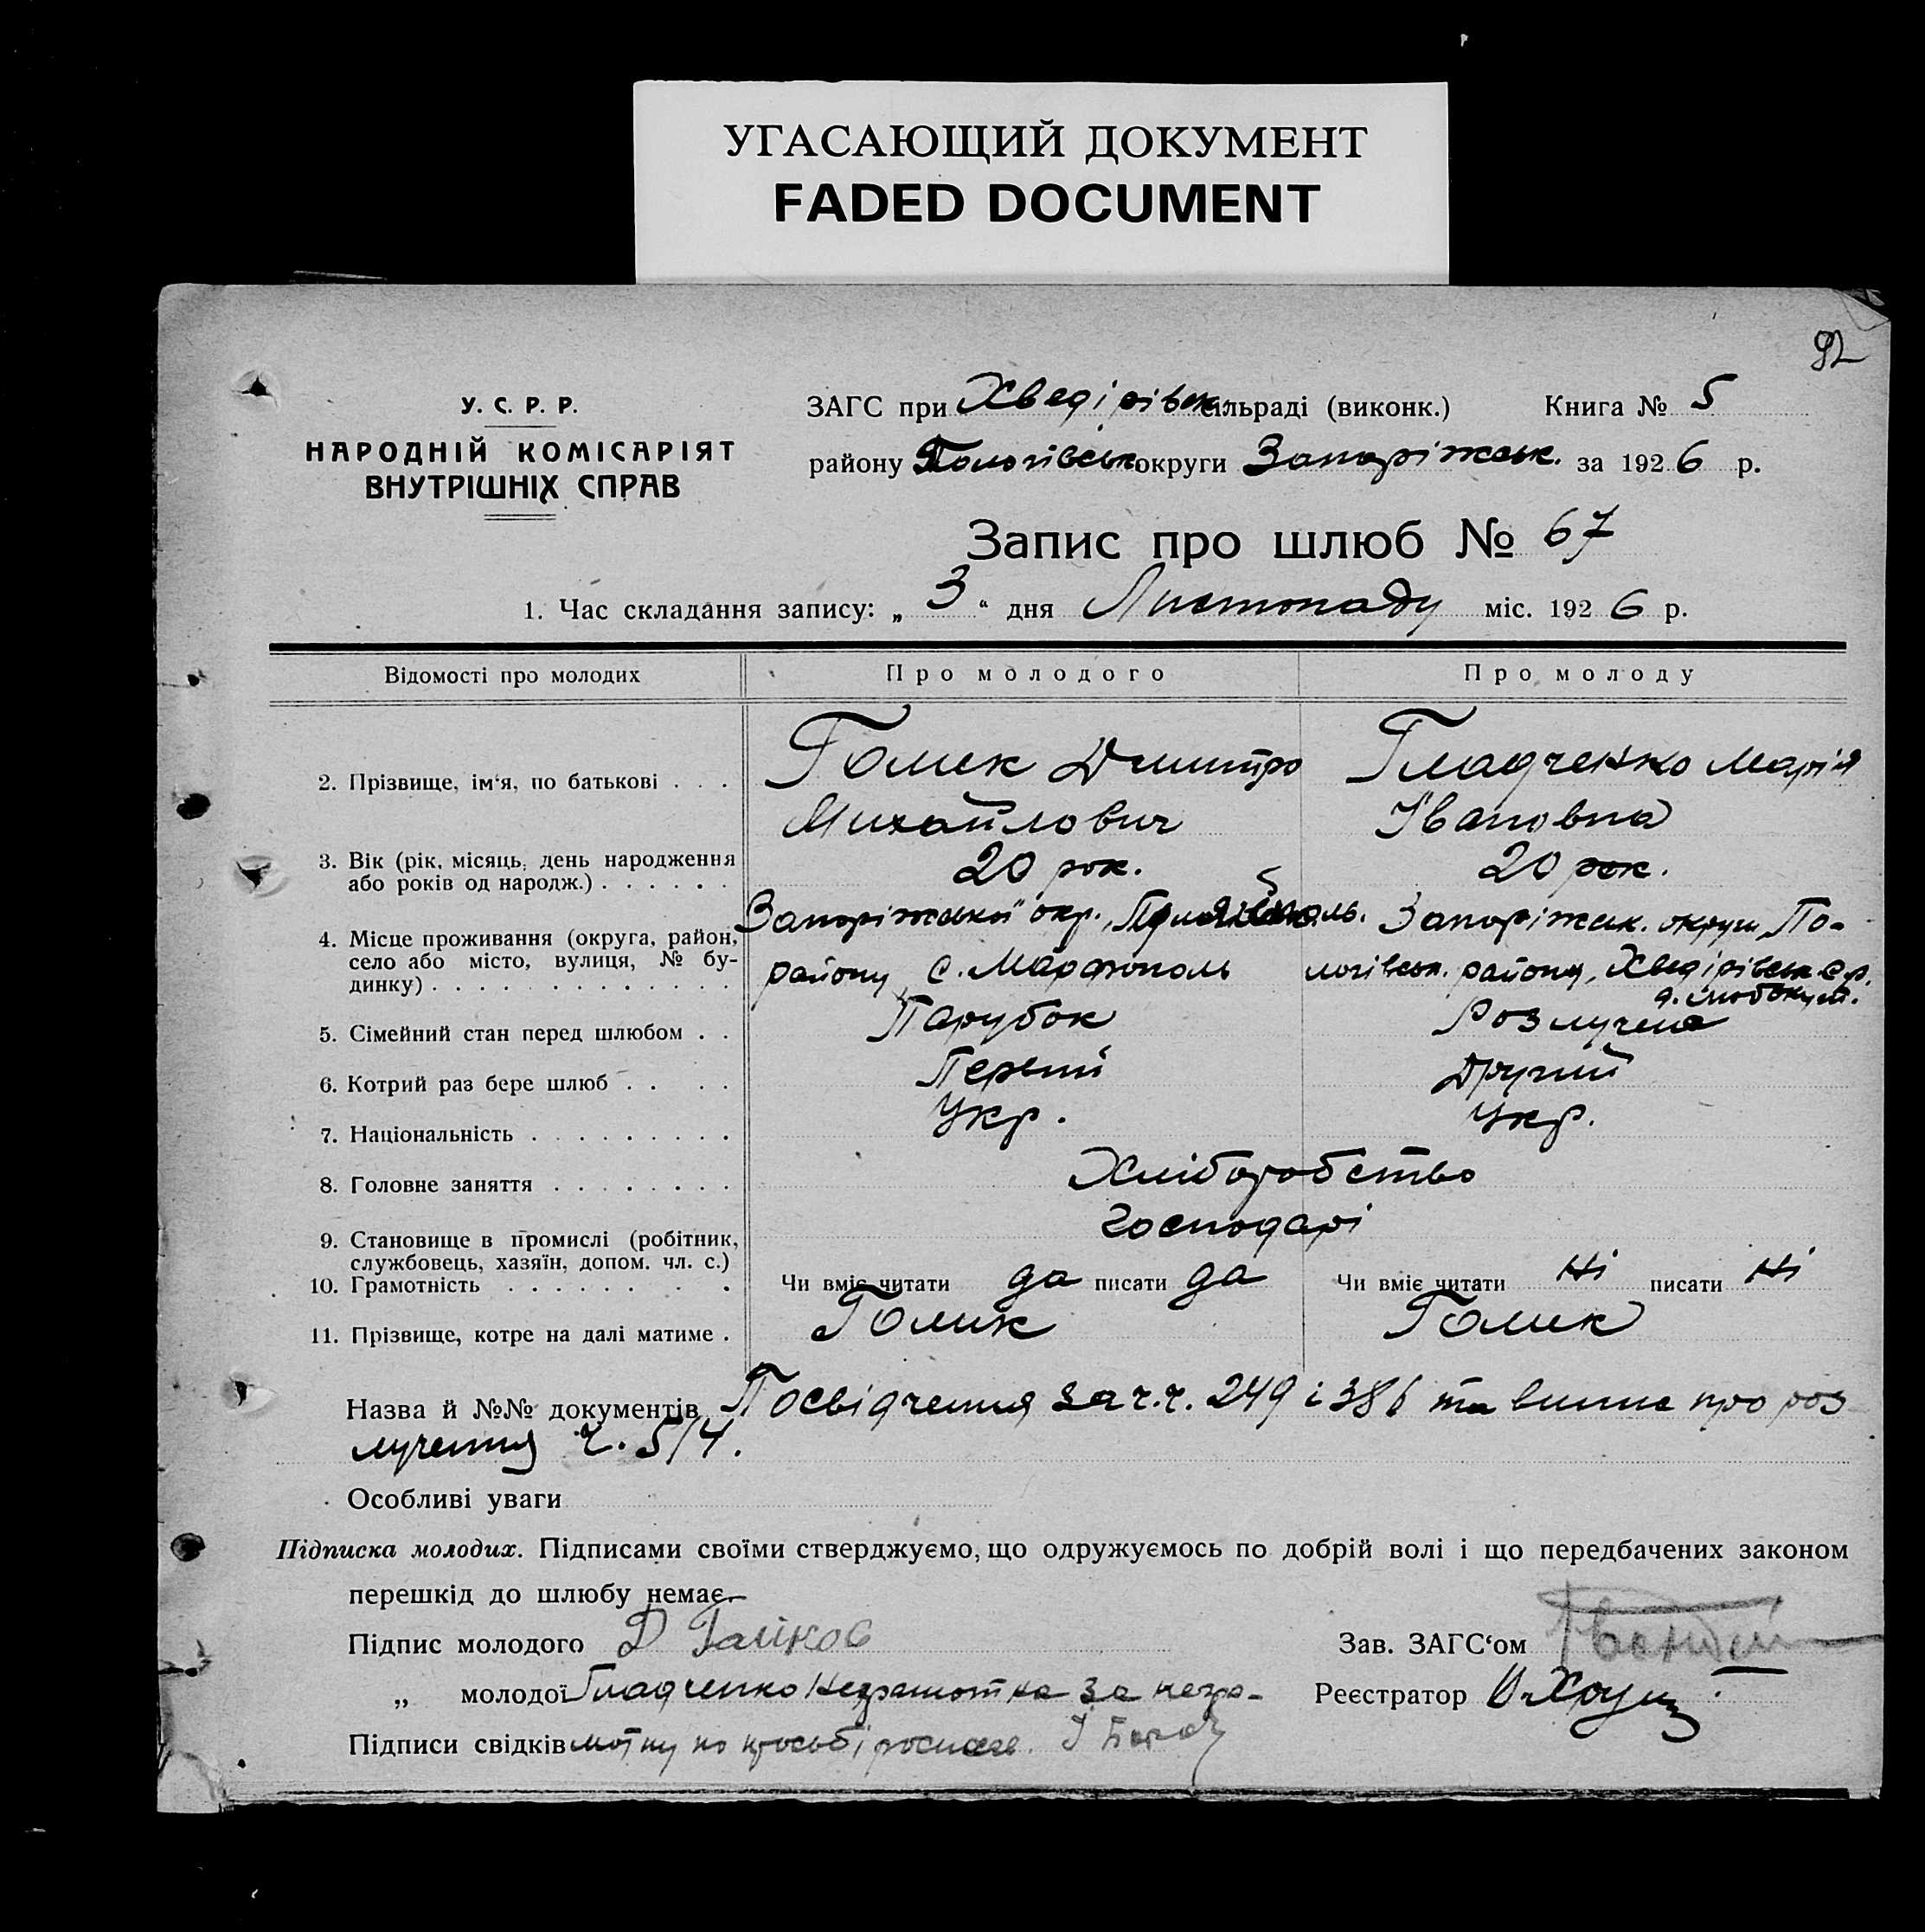 УГАСАЮЩИЙ ДОКУМЕНТ
FADED DOCUMENT
92
У. С. Р. Р.
НАРОДНІЙ КОМІСАРІЯТ
ВНУТРІШНІХ СПРАВ
ЗАГС при Хведірівськ. сільраді (виконк.) Книга № 5
району Пологівськ. округи Запоріжськ. за 1926 р.
Запис про шлюб № 67
1. Час складання запису: „ 3 “ дня Листопаду міс. 1926 р.
Відомості про молодих Про молодого Про молоду
2. Прізвище, ім‘я, по батькові . . . Голик Дмитро Гладченко Марія
Михайлович Івановна
3. Вік (рік, місяць, день народження 20 рок. 20 рок.
або років од народж.) . . . . . .
Запоріжської окр., Запоріжськ. округи, По-
4. Місце проживання (округа, район,
село або місто, вулиця, № бу- району, с. Марфополь логівськ. району, Хведірівськ. с.р.
динку) . . . . . . . . . . . . .
5. Сімейний стан перед шлюбом . . Парубок Розлучена
6. Котрий раз бере шлюб . . . . Первий Другий
7. Національність . . . . . . . . . Укр. Укр.
8. Головне заняття . . . . . . . . Хліборобство
9. Становище в промислі (робітник, Господарі
службовець, хазяїн, допом. чл. с.)
10. Грамотність . . . . . . . . Чи вміє читати да писати да Чи вміє читати Ні писати Ні
11. Прізвище, котре на далі матиме . Голик Голик
Назва й №№ документів Посвідчення за ч.ч. 249 і 386 та випис про роз
лучення ч. 5/4.
Особливі уваги
Підписка молодих. Підписами своїми стверджуємо, що одружуємось по добрій волі і що передбачених законом
перешкід до шлюбу немає.
Підпис молодого Д Галіков Зав. ЗАГС‘ом
„ молодої Гладченко Неграмотна За негра- Реєстратор
Підписи свідків мотну по просьбі росписав.